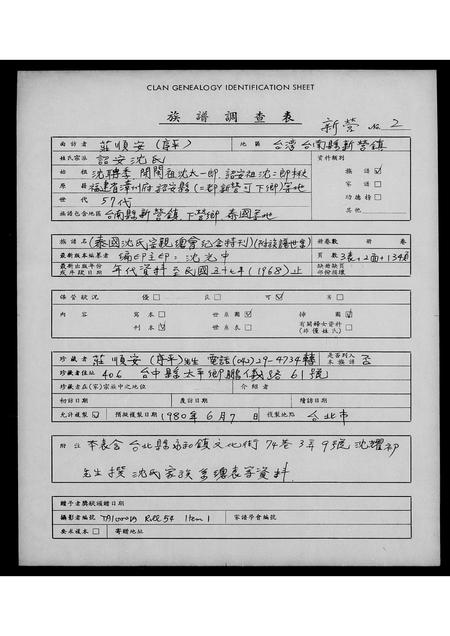 CLAN GENEALOGY IDENTIFICATION SHEET
族譜調查表
新營 No. 2
面訪者 莊順安(序平) 地區 台灣台南縣新營鎮
姓氏宗派 詔安沈氏 資料類別
始祖 沈聘季 開閩祖沈大一郎 詔安祖沈 族譜
原居 福建省漳州府詔安縣 家譜
世代 57代 功德榜
族譜包含地區 台南縣新營鎮 下營鄉 泰國等地 其他
族譜名 (泰國沈氏宗親總會紀念特刊) 冊卷數 冊 卷
最新版本編纂者 編印主印:沈光中 頁數 3表+2面+134頁
最新出版年份或年錄日期 年代資料至民國五十七年(1968)止 缺冊缺頁部份損壞
保管狀況 優 良 可 劣
內容 寫本 世系圖 掛圖
刊本 世系表 有關婦女資料(非僅姓氏)
珍藏者 莊順安(序平)先生 電話(042)29-4734轉 是否列入本族譜 否
珍藏者住址 406 台中縣太平鄉鵬儀路61號
珍藏者在(家)宗族中之地位 介紹者
初訪日期 覆訪日期 續訪日期
允許複製 預擬複製日期 1980年6月7日 複製地點 台北市
附注 本表含台北縣永和鎮文化街74巷3弄9號沈耀初
先生撰沈氏家族系總表等資料
贈予者獎狀頒贈日期
攝影者編號 Roll 54 Item 1 家譜學會編號
要求複本 寄贈地址